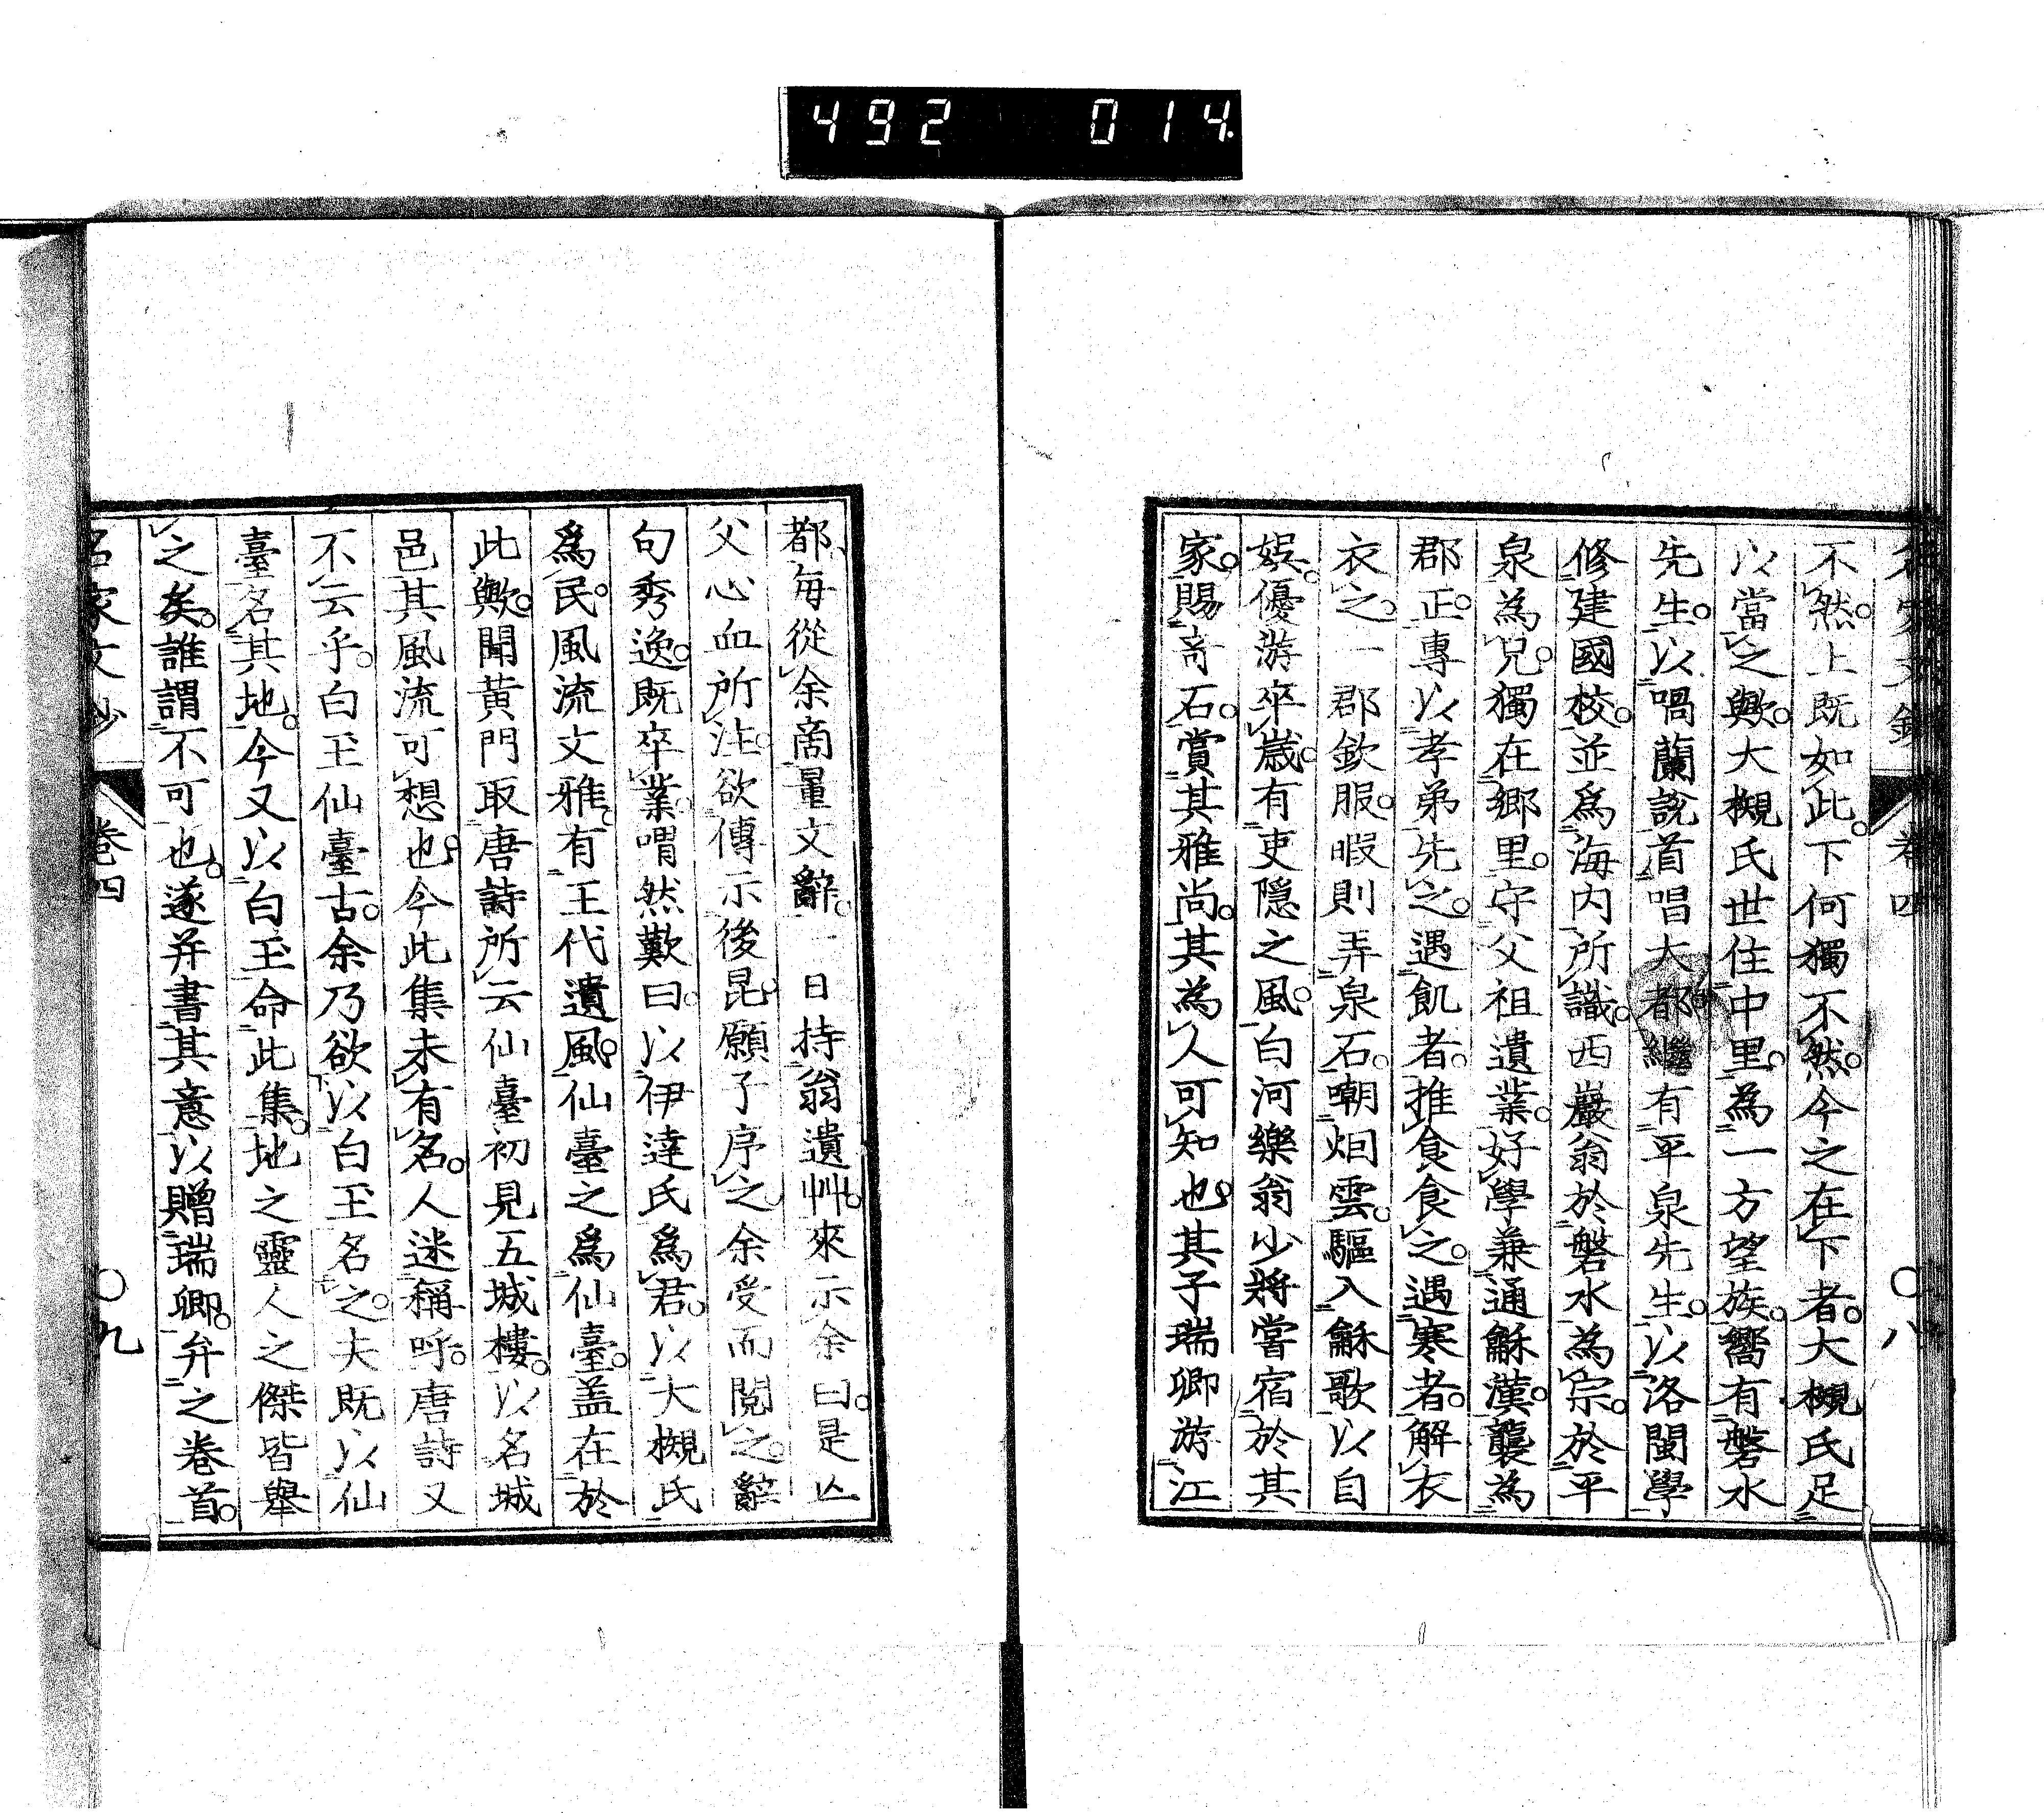 492 014
名家文鈔 卷四 〇八
不然。上既如此。下何獨不然。今之在下者。大槻氏足
以當之歟。大槻氏世住中里。為一方望族。嚮有磐水
先生。以喎蘭說首唱大都。繼有平泉先生。以洛閩學
修建國校。並爲海内所識。西巖翁於磐水為宗。於平
泉為兄。獨在鄉里。守父祖遺業。好學兼通龢漢。襲為
郡正。專以孝弟先之。遇飢者。推食食之。遇寒者。解衣
衣之。一郡欽服。暇則弄泉石。嘲烟雲。驅入龢歌以自
娯。優游卒歲。有吏隱之風。白河樂翁少將嘗宿於其
家。賜奇石。賞其雅尚。其為人可知也。其子瑞卿游江
都。每從余商量文辭。一日持翁遺艸。來示余曰。是亾
父心血所注。欲傳示後昆。願子序之。余受而閲之。辭
句秀逸。既卒業。喟然歎曰。以伊達氏爲君。以大槻氏
爲民。風流文雅。有王代遺風。仙臺之爲仙臺。盖在於
此歟。聞黄門取唐詩所云仙臺初見五城樓。以名城
邑。其風流可想也。今此集未有名。人迷稱呼。唐詩又
不云乎。白玉仙臺古。余乃欲以白玉名之。夫既以仙
臺名其地。今又以白玉命此集。地之靈人之傑皆舉
之矣。誰謂不可也。遂并書其意以贈瑞卿。弁之卷首。
名家文鈔 卷四 〇九